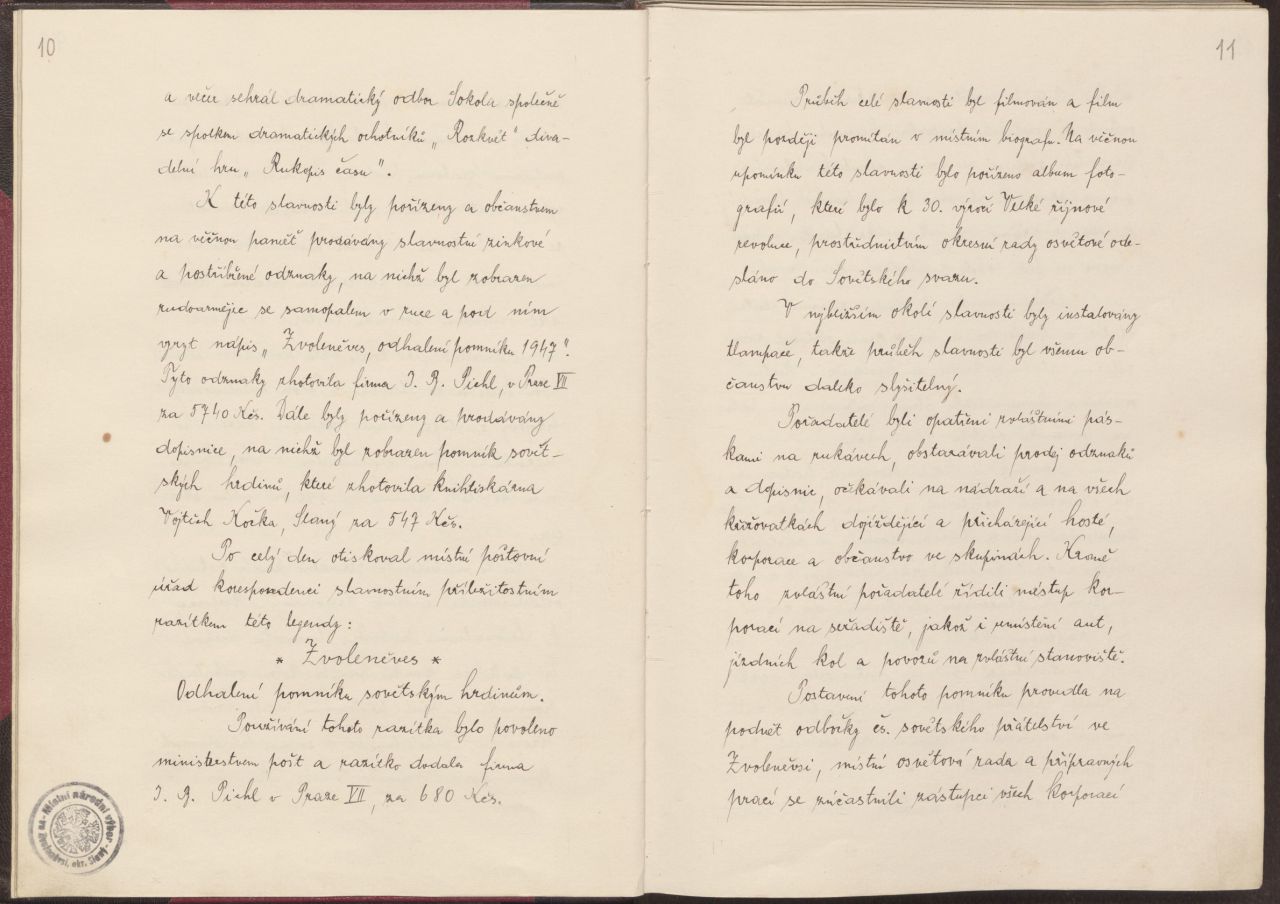 10
a večer sehrál dramatický odbor Sokola společně
se spolkem dramatických ochotníků „Rozkvět" diva-
delní hru „Rukopis času".
K této slavnosti byly pořízeny a občanstvem
na věčnou paměť prodávány slavnostní zinkové
a postříbřené odznaky, na nichž byl zobrazen
rudoarmějec se samopalem v ruce a pod ním
vyryt nápis „Zvoleněves, odhalení pomníku 1947".
Tyto odznaky zhotovila firma J. B. Pichl, v Praze VII
za 5740 Kčs. Dále byly pořízeny a prodávány
dopisnice, na nichž byl zobrazen pomník sovět-
ských hrdinů, které zhotovila knihtiskárna
Vojtěch Kočka, Slaný za 547 Kčs.
Po celý den otiskoval místní poštovní
úřad korespondenci slavnostním příležitostním
razítkem této legendy:
* Zvoleněves *
Odhalení pomníku sovětským hrdinům.
Používání tohoto razítka bylo povoleno
ministerstvem pošt a razítko dodala firma
J. B. Pichl v Praze VII, za 680 Kčs.
Místní národní výbor
ve Zvoleněvsi, okr. Slaný
11
Průběh celé slavnosti byl filmován a film
byl později promítán v místním biografu. Na věčnou
upomínku této slavnosti bylo pořízeno album foto-
grafií, které bylo k 30. výročí Velké říjnové
revoluce, prostřednictvím okresní rady osvětové ode-
sláno do Sovětského svazu.
V nejbližším okolí slavnosti byly instalovány
tlampače, takže průběh slavnosti byl všemu ob-
čanstvu daleko slyšitelný.
Pořadatelé byli opatřeni zvláštními pás-
kami na rukávech, obstarávali prodej odznaků
a dopisnic, očekávali na nádraží a na všech
křižovatkách dojíždějící a přicházející hosté,
korporace a občanstvo ve skupinách. Kromě
toho zvláštní pořadatelé řídili nástup kor-
porací na seřadiště, jakož i umístění aut,
jízdních kol a povozů na zvláštní stanoviště.
Postavení tohoto pomníku provedla na
podnět odbočky čs. sovětského přátelství ve
Zvoleněvsi, místní osvětová rada a přípravných
prací se zúčastnili zástupci všech korporací